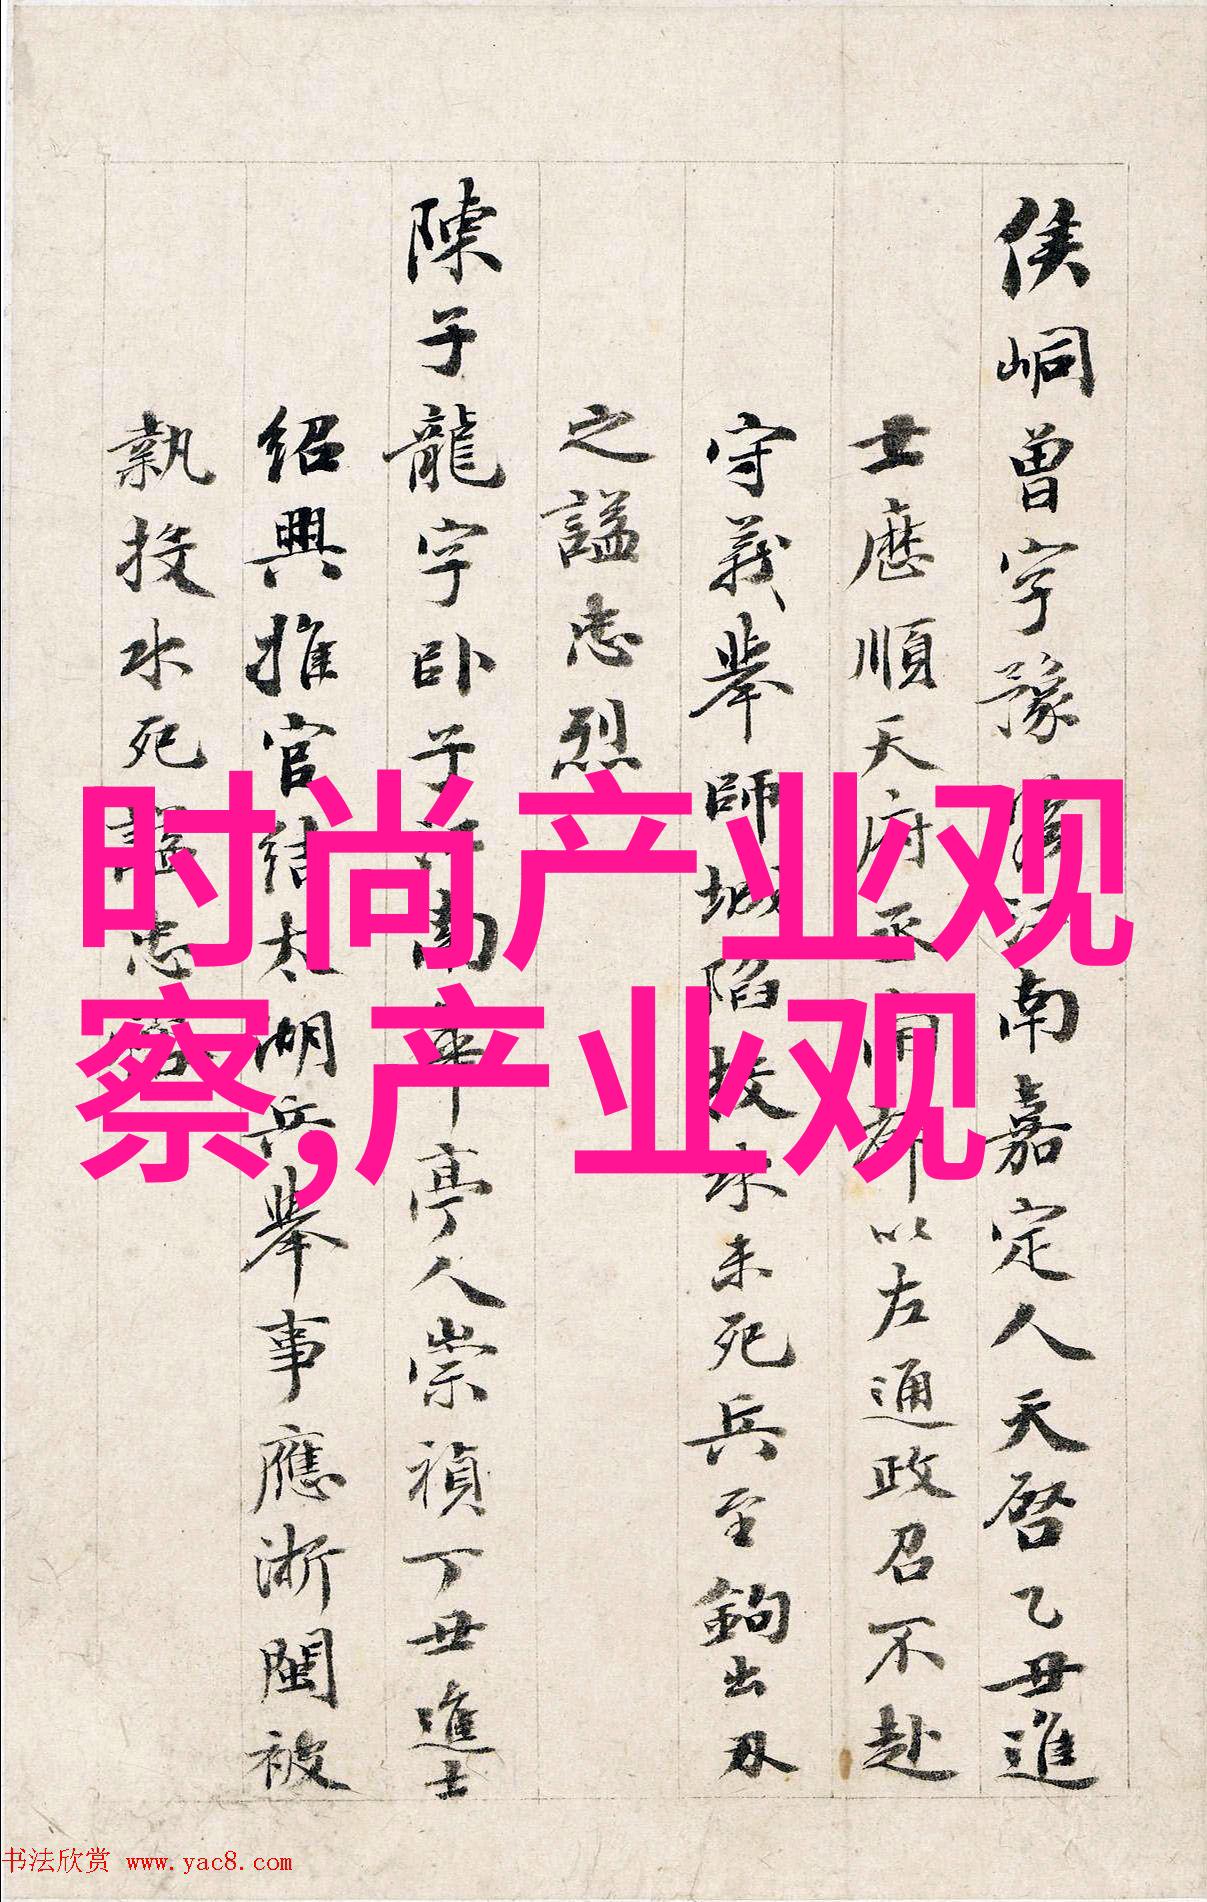 侯峒曾字豫瞻江南嘉定人天启乙丑進
士歷順天府丞南都以左通政召不赴
守義舉師城陷投水未死兵至鉤出刃
之謚忠烈
陳子龍字卧子江南華亭人崇禎丁丑進士
紹興推官結太湖兵舉事應浙閩被
執投水死謚忠
时尚产业观
察,产业观
书法欣赏 www.yac8.com